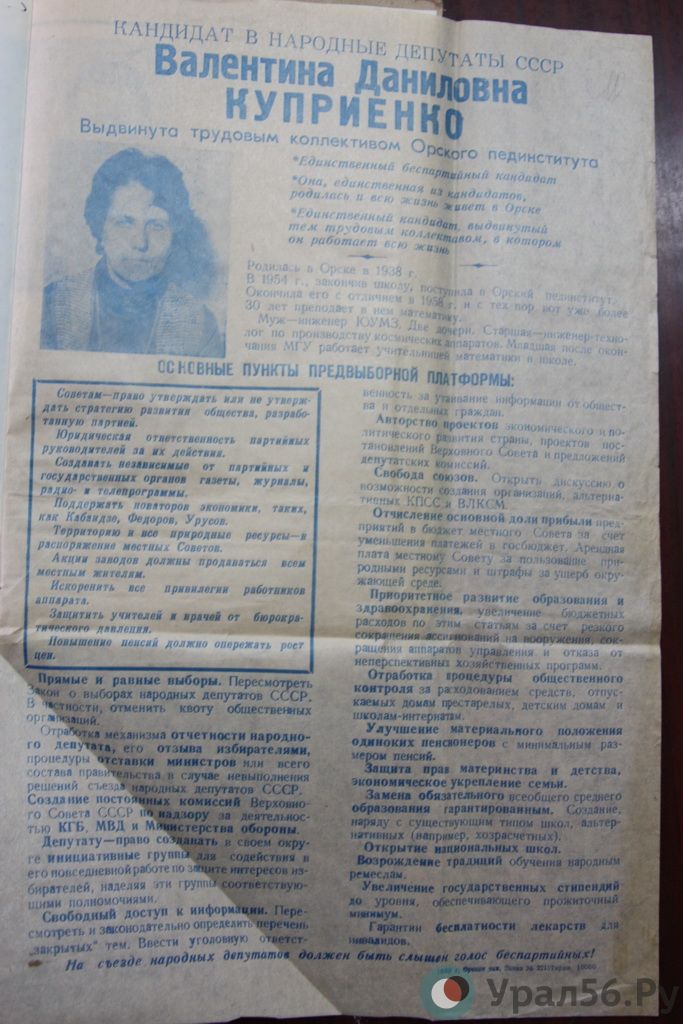 КАНДИДАТ В НАРОДНЫЕ ДЕПУТАТЫ СССР
Валентина Даниловна
КУПРИЕНКО
Выдвинута трудовым коллективом Орского пединститута
*Единственный беспартийный кандидат
*Она, единственная из кандидатов,
родилась и всю жизнь живет в Орске
*Единственный кандидат, выдвинутый
тем трудовым коллективом, в котором
он работает всю жизнь
Родилась в Орске в 1938 г.
В 1954 г., закончив школу, поступила в Орский пединститут.
Окончила его с отличием в 1958 г. и с тех пор вот уже более
30 лет преподает в нем математику.
Муж—инженер ЮУМЗ. Две дочери. Старшая—инженер-техно-
лог по производству космических аппаратов. Младшая после окон-
чания МГУ работает учительницей математики в школе.
ОСНОВНЫЕ ПУНКТЫ ПРЕДВЫБОРНОЙ ПЛАТФОРМЫ:
Советам—право утверждать или не утверж-
дать стратегию развития общества, разрабо-
танную партией.
Юридическая ответственность партийных
руководителей за их действия.
Создавать независимые от партийных и
государственных органов газеты, журналы,
радио- и телепрограммы.
Поддержать новаторов экономики, таких,
как Кабаидзе, Федоров, Урусов.
Территорию и все природные ресурсы—в
распоряжение местных Советов.
Акции заводов должны продаваться всем
местным жителям.
Искоренить все привилегии работников
аппарата.
Защитить учителей и врачей от бюрокра-
тического давления.
Повышение пенсий должно опережать рост
цен.
Прямые и равные выборы. Пересмотреть
Закон о выборах народных депутатов СССР.
В частности, отменить квоту общественных
организаций.
Отработка механизма отчетности народно-
го депутата, его отзыва избирателями,
процедуры отставки министров или всего
состава правительства в случае невыполнения
решений съезда народных депутатов СССР.
Создание постоянных комиссий Верховно-
го Совета СССР по надзору за деятельнос-
тью КГБ, МВД и Министерства обороны.
Депутату—право создавать в своем окру-
ге инициативные группы для содействия в
его повседневной работе по защите интересов из-
бирателей, наделяя эти группы соответствую-
щими полномочиями.
Свободный доступ к информации. Пере-
смотреть и законодательно определить перечень
„закрытых" тем. Ввести уголовную ответст-
венность за утаивание информации от общест-
ва и отдельных граждан.
Авторство проектов экономического и по-
литического развития страны, проектов пос-
тановлений Верховного Совета и предложений
депутатских комиссий.
Свобода союзов. Открыть дискуссию о
возможности создания организаций, альтерна-
тивных КПСС и ВЛКСМ.
Отчисление основной доли прибыли пред-
приятий в бюджет местного Совета за счет
уменьшения платежей в госбюджет. Арендная
плата местному Совету за пользование при-
родными ресурсами и штрафы за ущерб окру-
жающей среде.
Приоритетное развитие образования и
здравоохранения, увеличение бюджетных
расходов по этим статьям за счет резкого
сокращения ассигнований на вооружения, сок-
ращения аппаратов управления и отказа от
неперспективных хозяйственных программ.
Отработка процедуры общественного
контроля за расходованием средств, отпус-
каемых домам престарелых, детским домам и
школам-интернатам.
Улучшение материального положения
одиноких пенсионеров с минимальным раз-
мером пенсий.
Защита прав материнства и детства,
экономическое укрепление семьи.
Замена обязательного всеобщего среднего
образования гарантированным. Создание,
наряду с существующим типом школ, альтер-
нативных (например, хозрасчетных).
Открытие национальных школ.
Возрождение традиций обучения народным
ремеслам.
Увеличение государственных стипендий
до уровня, обеспечивающего прожиточный
минимум.
Гарантии бесплатности лекарств для
инвалидов.
На съезде народных депутатов должен быть слышен голос беспартийных!
Урал56.Ру